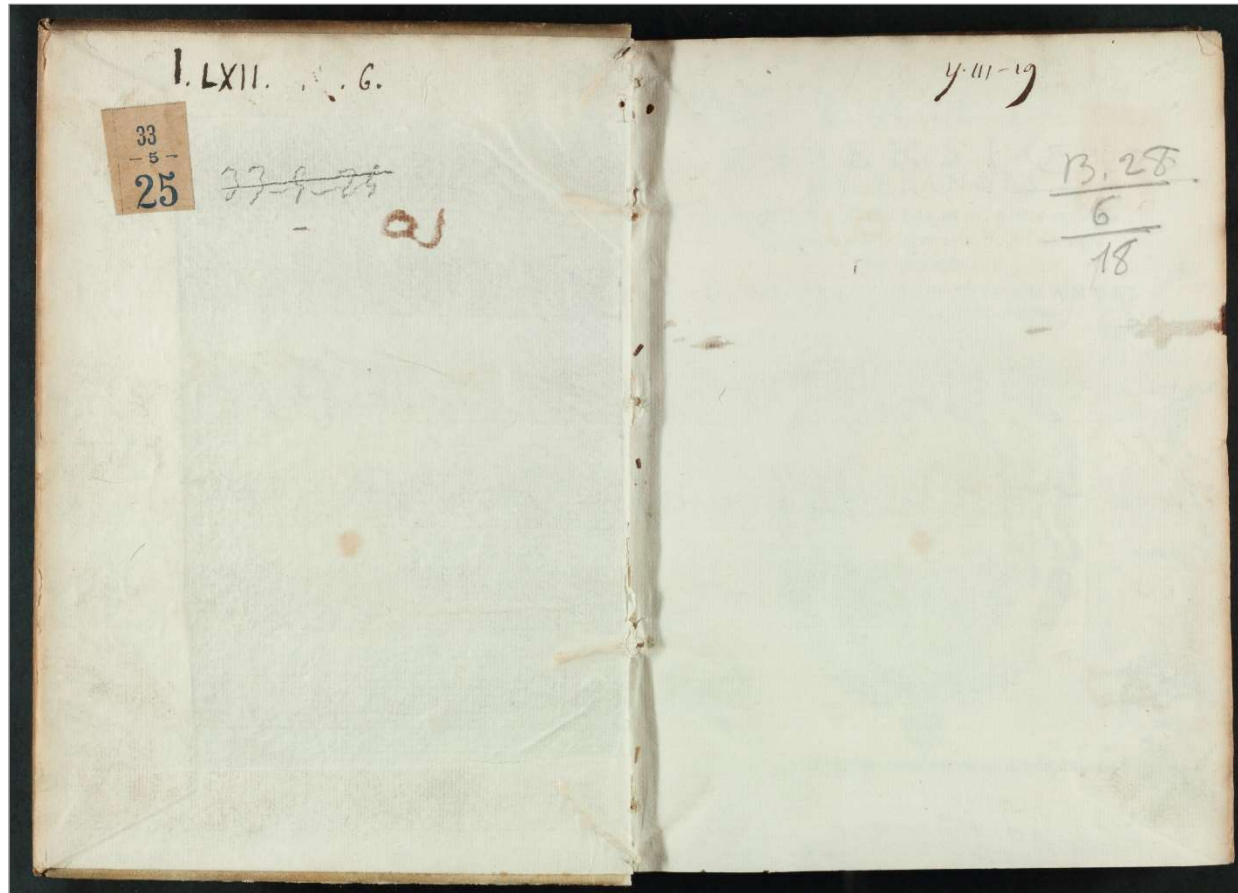 I. LXII. . . . 6.
33
- 5 -
25
33-5-25
y-III-19
B. 28
6
18